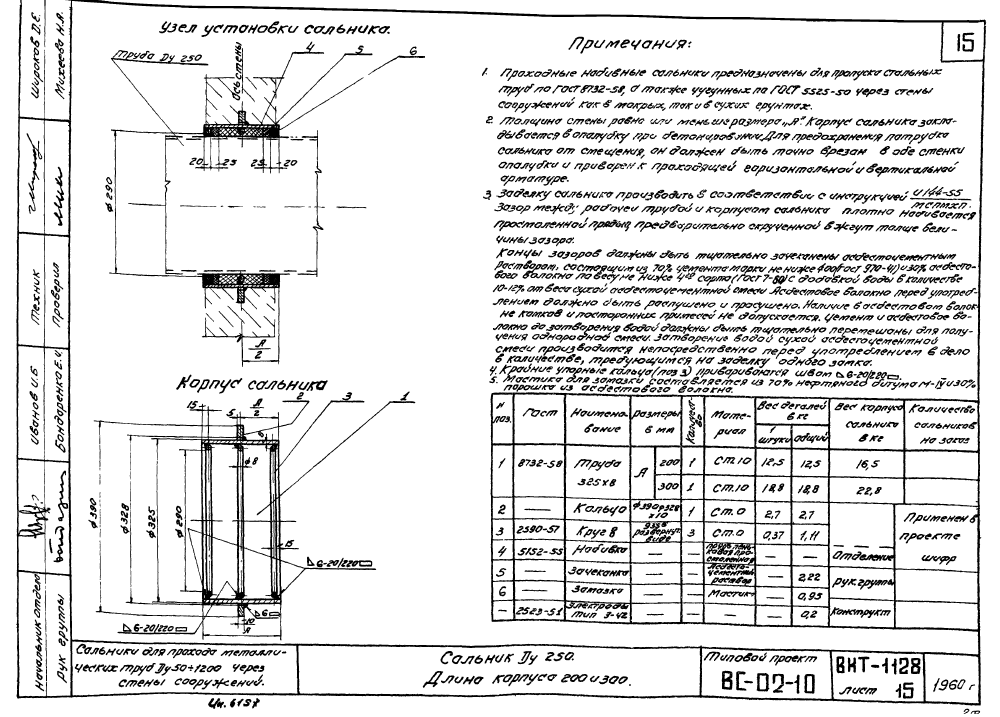 Узел установки сальника.
Труба Dу 250
Ось стены
4
5
6
20
25
25
20
ф 290
А
2
Корпус сальника
15
5
А
2
2
3
1
ф8
ф 390
ф 328
ф 325
ф 290
15
6-20/220
6-20/220
6
10
А
Примечания:
15
1. Проходные набивные сальники предназначены для пропуска стальных
труб по ГОСТ 8732-58, а также чугунных по ГОСТ 5525-50 через стены
сооружений как в мокрых, так и в сухих грунтах.
2. Толщина стены равна или меньше размера „А". Корпус сальника закла-
дывается в опалубку при бетонировании. Для предохранения патрубка
сальника от смещения, он должен быть точно врезан в обе стенки
опалубки и приварен к проходящей горизонтальной и вертикальной
арматуре.
3. Заделку сальника производить в соответствии с инструкцией И144-55
МСПМХП.
Зазор между рабочей трубой и корпусом сальника плотно набивается
просмоленной прядью, предварительно скрученной в жгут толще вели-
чины зазора.
Концы зазоров должны быть тщательно зачеканены асбестоцементным
раствором, состоящим из 70% цемента марки не ниже 400 (ГОСТ 970-41) и 30% асбесто-
вого волокна по весу не ниже 4го сорта (ГОСТ 7-60) с добавкой воды в количестве
10-12% от веса сухой асбестоцементной смеси. Асбестовое волокно перед употреб-
лением должно быть распушено и просушено. Наличие в асбестовом волок-
не комков и посторонних примесей не допускается. Цемент и асбестовое во-
локно до затворения водой должны быть тщательно перемешаны для полу-
чения однородной смеси. Затворение водой сухой асбестоцементной
смеси производится непосредственно перед употреблением в дело
в количестве, требующимся на заделку одного замка.
4. Крайние упорные кольца (поз 3) привариваются швом 6-20/220.
5. Мастика для замазки составляется из 70% нефтяного битума М-IV и 30%
порошка из асбестового волокна.
N поз. ГОСТ Наимено-вание размеры в мм Количество Мате-риал Вес деталей в кг 1 штуки общий Вес корпуса сальника в кг Количество сальников на заказ
1 8732-58 Труба 325х8 А 200 1 Ст.10 12,5 12,5 16,5
300 1 Ст.10 18,8 18,8 22,8
2 — Кольцо ф390/ф328 х10 1 Ст.0 2,7 2,7
3 2590-57 Круг 8 развернут. виде 3 Ст.0 0,37 1,11 — —
4 5152-55 Набивка — — — —
5 Зачеканка — — асбесто-цементный раствор — 2,22
6 Замазка — — Мастика — 0,95
— 2523-51 Электроды тип Э-42 — — — — 0,2
Применен в
проекте
шифр
Отделение
рук группы
Конструкт
Сальники для прохода металли-
ческих труб Dу-50÷1200 через
стены сооружений.
Сальник Dу 250.
Длина корпуса 200 и 300.
Типовой проект
ВС-02-10
ВКТ-1128
лист 15
1960 г
Начальник отдела
Рук группы
Иванов И.Б
Бондаренко Е.И
Техник
Проверил
Широков Д.Е.
Михеева Н.А.
Ин. 6157